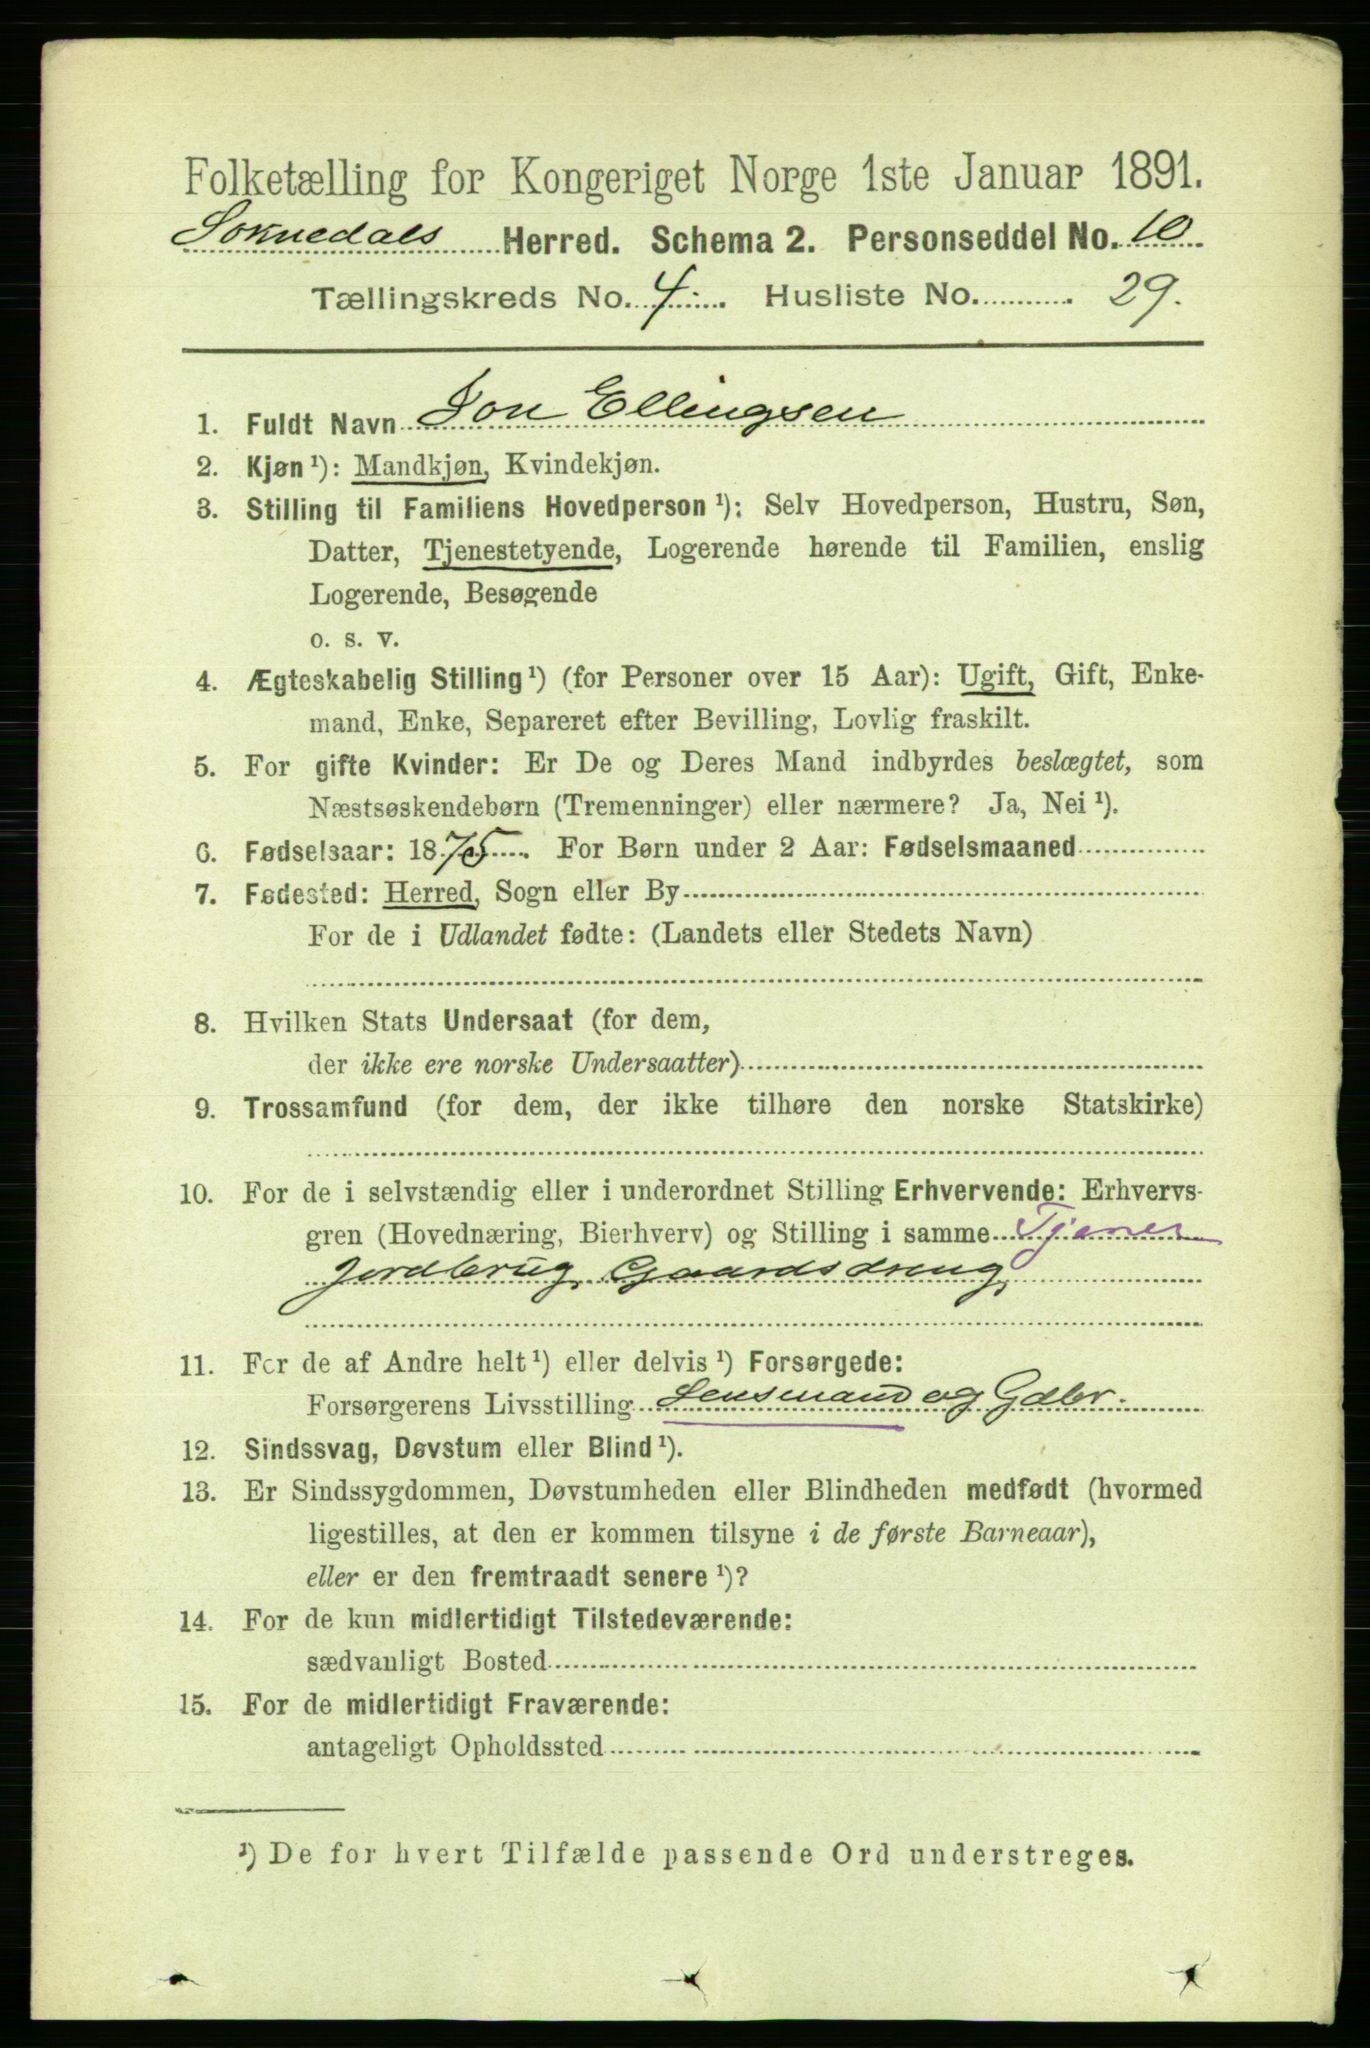 Folketælling for Kongeriget Norge 1ste Januar 1891.
Soknedals Herred. Schema 2. Personseddel No. 10
Tællingskreds No. 4. Husliste No. 29.
1. Fuldt Navn Jon Ellingsen
2. Kjøn ¹): Mandkjøn, Kvindekjøn.
3. Stilling til Familiens Hovedperson ¹): Selv Hovedperson, Hustru, Søn,
Datter, Tjenestetyende, Logerende hørende til Familien, enslig
Logerende, Besøgende
o. s. v.
4. Ægteskabelig Stilling ¹) (for Personer over 15 Aar): Ugift, Gift, Enke-
mand, Enke, Separeret efter Bevilling, Lovlig fraskilt.
5. For gifte Kvinder: Er De og Deres Mand indbyrdes beslægtet, som
Næstsøskendebørn (Tremenninger) eller nærmere? Ja, Nei ¹).
6. Fødselsaar: 1875. For Børn under 2 Aar: Fødselsmaaned
7. Fødested: Herred, Sogn eller By
For de i Udlandet fødte: (Landets eller Stedets Navn)
8. Hvilken Stats Undersaat (for dem,
der ikke ere norske Undersaatter)
9. Trossamfund (for dem, der ikke tilhøre den norske Statskirke)
10. For de i selvstændig eller i underordnet Stilling Erhvervende: Erhvervs-
gren (Hovednæring, Bierhverv) og Stilling i samme Tjener
Jordbrug, Gaardsdreng,
11. For de af Andre helt ¹) eller delvis ¹) Forsørgede:
Forsørgerens Livsstilling Lensmand og Gdbr.
12. Sindssvag, Døvstum eller Blind ¹).
13. Er Sindssygdommen, Døvstumheden eller Blindheden medfødt (hvormed
ligestilles, at den er kommen tilsyne i de første Barneaar),
eller er den fremtraadt senere ¹)?
14. For de kun midlertidigt Tilstedeværende:
sædvanligt Bosted
15. For de midlertidigt Fraværende:
antageligt Opholdssted
¹) De for hvert Tilfælde passende Ord understreges.